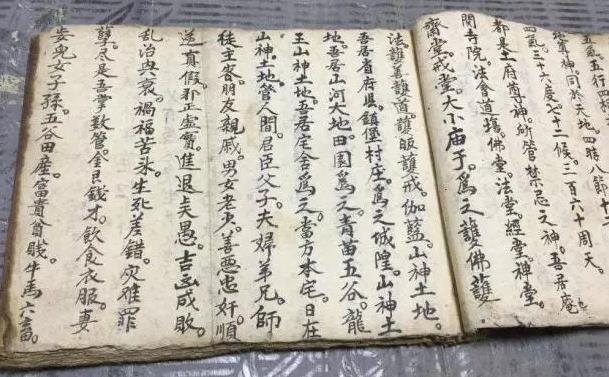 五氣五行四
土府神。司於天地。四時八節。十二
四氣。三十六度。七十二候。三百六十周天。
都是土府尊神。所管禁忌之神。吾居庵
関寺院。法會道塲佛堂。法堂。經堂禅堂。
齋堂戒堂。大小庙子。爲之護佛護
法護善護道。護皈護戒。伽藍。山神土地。
吾居省府縣。鎮堡村庄。爲之城隍。山神土
地。吾居山河大地。田園爲之。青苗五谷。龍
王山神土地。吾居宅舍爲之。當方本宅。日在
山神土地。管人間。君臣父子。夫婦弟兄。師
徒主客。朋友親戚。男女老少。善恶忠奸。順
逆真假。邪正虛實。進退贒愚。吉凶成敗。
乱治興衰。禍福苦楽。生死差錯。灾难罪
孽。尽是吾掌数。管金艮錢才。飲食衣服。妻
妾兒女子孫。五谷田産。富貴貧賤。牛馬六畜。